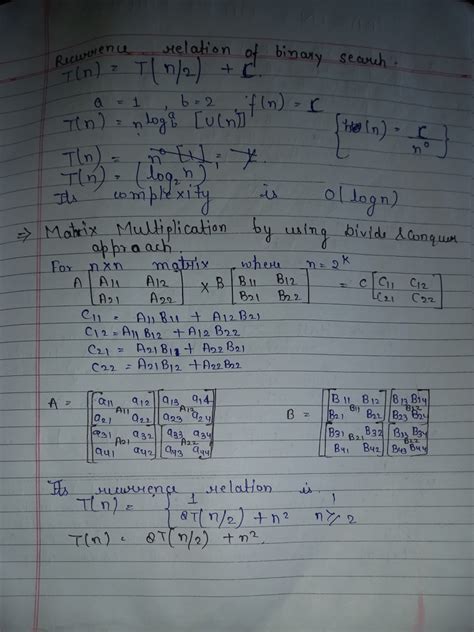 Recurrence relation of binary search.
T(n) = T(n/2) + C.
a = 1 , b = 2 , f(n) = C
T(n) = n^log_2^a [U(n)]
{h(n) = C/n^0}
T(n) = n^0
T(n) = (log_2 n)
Its complexity is O(logn)
⇒ Matrix Multiplication by using Divide & Conquer
approach.
For n×n matrix where n = 2^k
A [A11 A12 × B [B11 B12 = C [C11 C12
A21 A22] B21 B22] C21 C22]
C11 = A11 B11 + A12 B21
C12 = A11 B12 + A12 B22
C21 = A21 B11 + A22 B21
C22 = A21 B12 + A22 B22
A = B =
a11 a12 a13 a14 B11 B12 B13 B14
A11 A12 B11 B12
a21 a22 a23 a24 B21 B22 B23 B24
a31 a32 a33 a34 B31 B32 B33 B34
A21 A22 B21 B22
a41 a42 a43 a44 B41 B42 B43 B44
Its recurrence relation is,
T(n) = { 1 1
8T(n/2) + n^2 n ≥ 2
T(n) = 8T(n/2) + n^2.